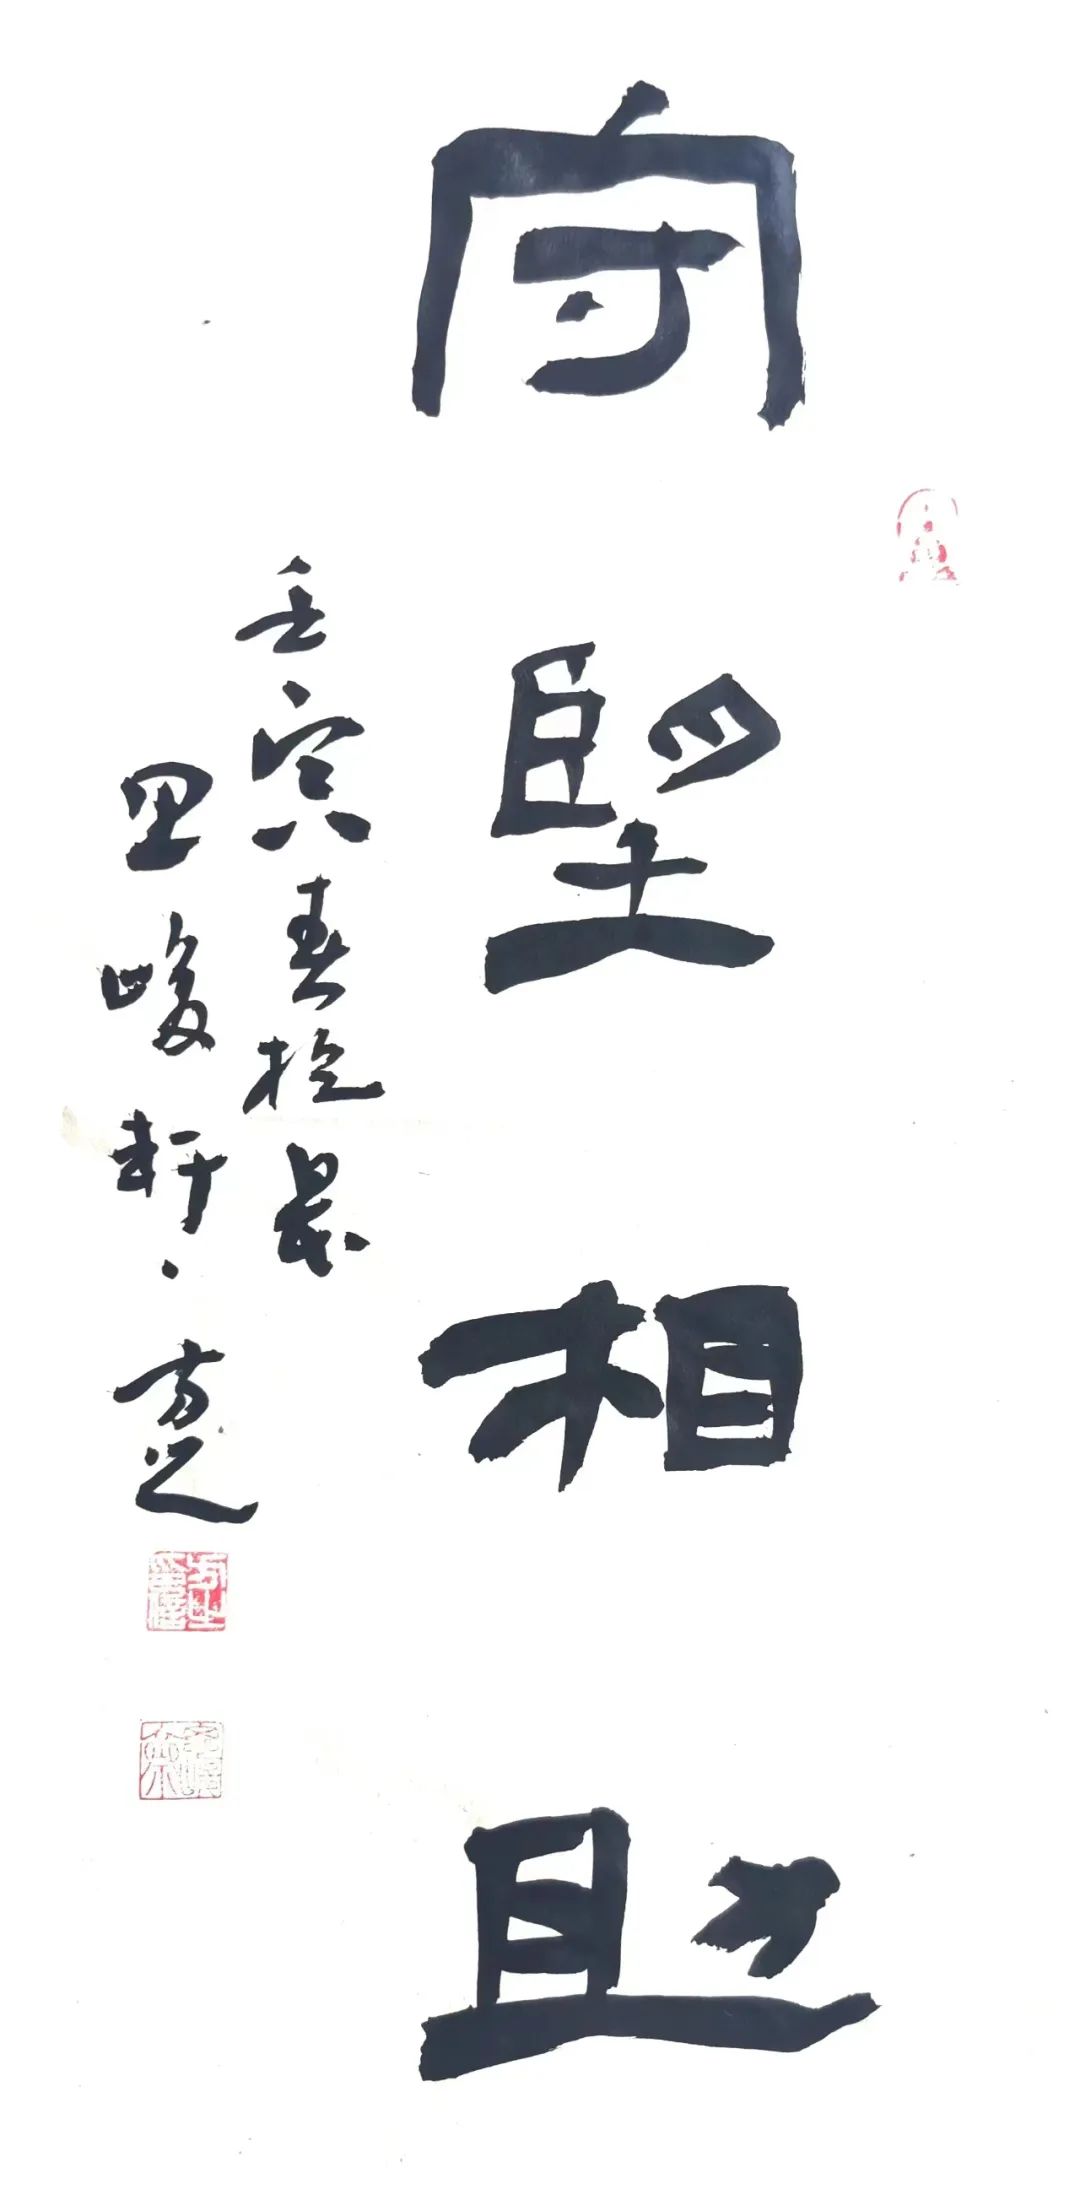 守望相助
壬寅春於
峻軒 方之